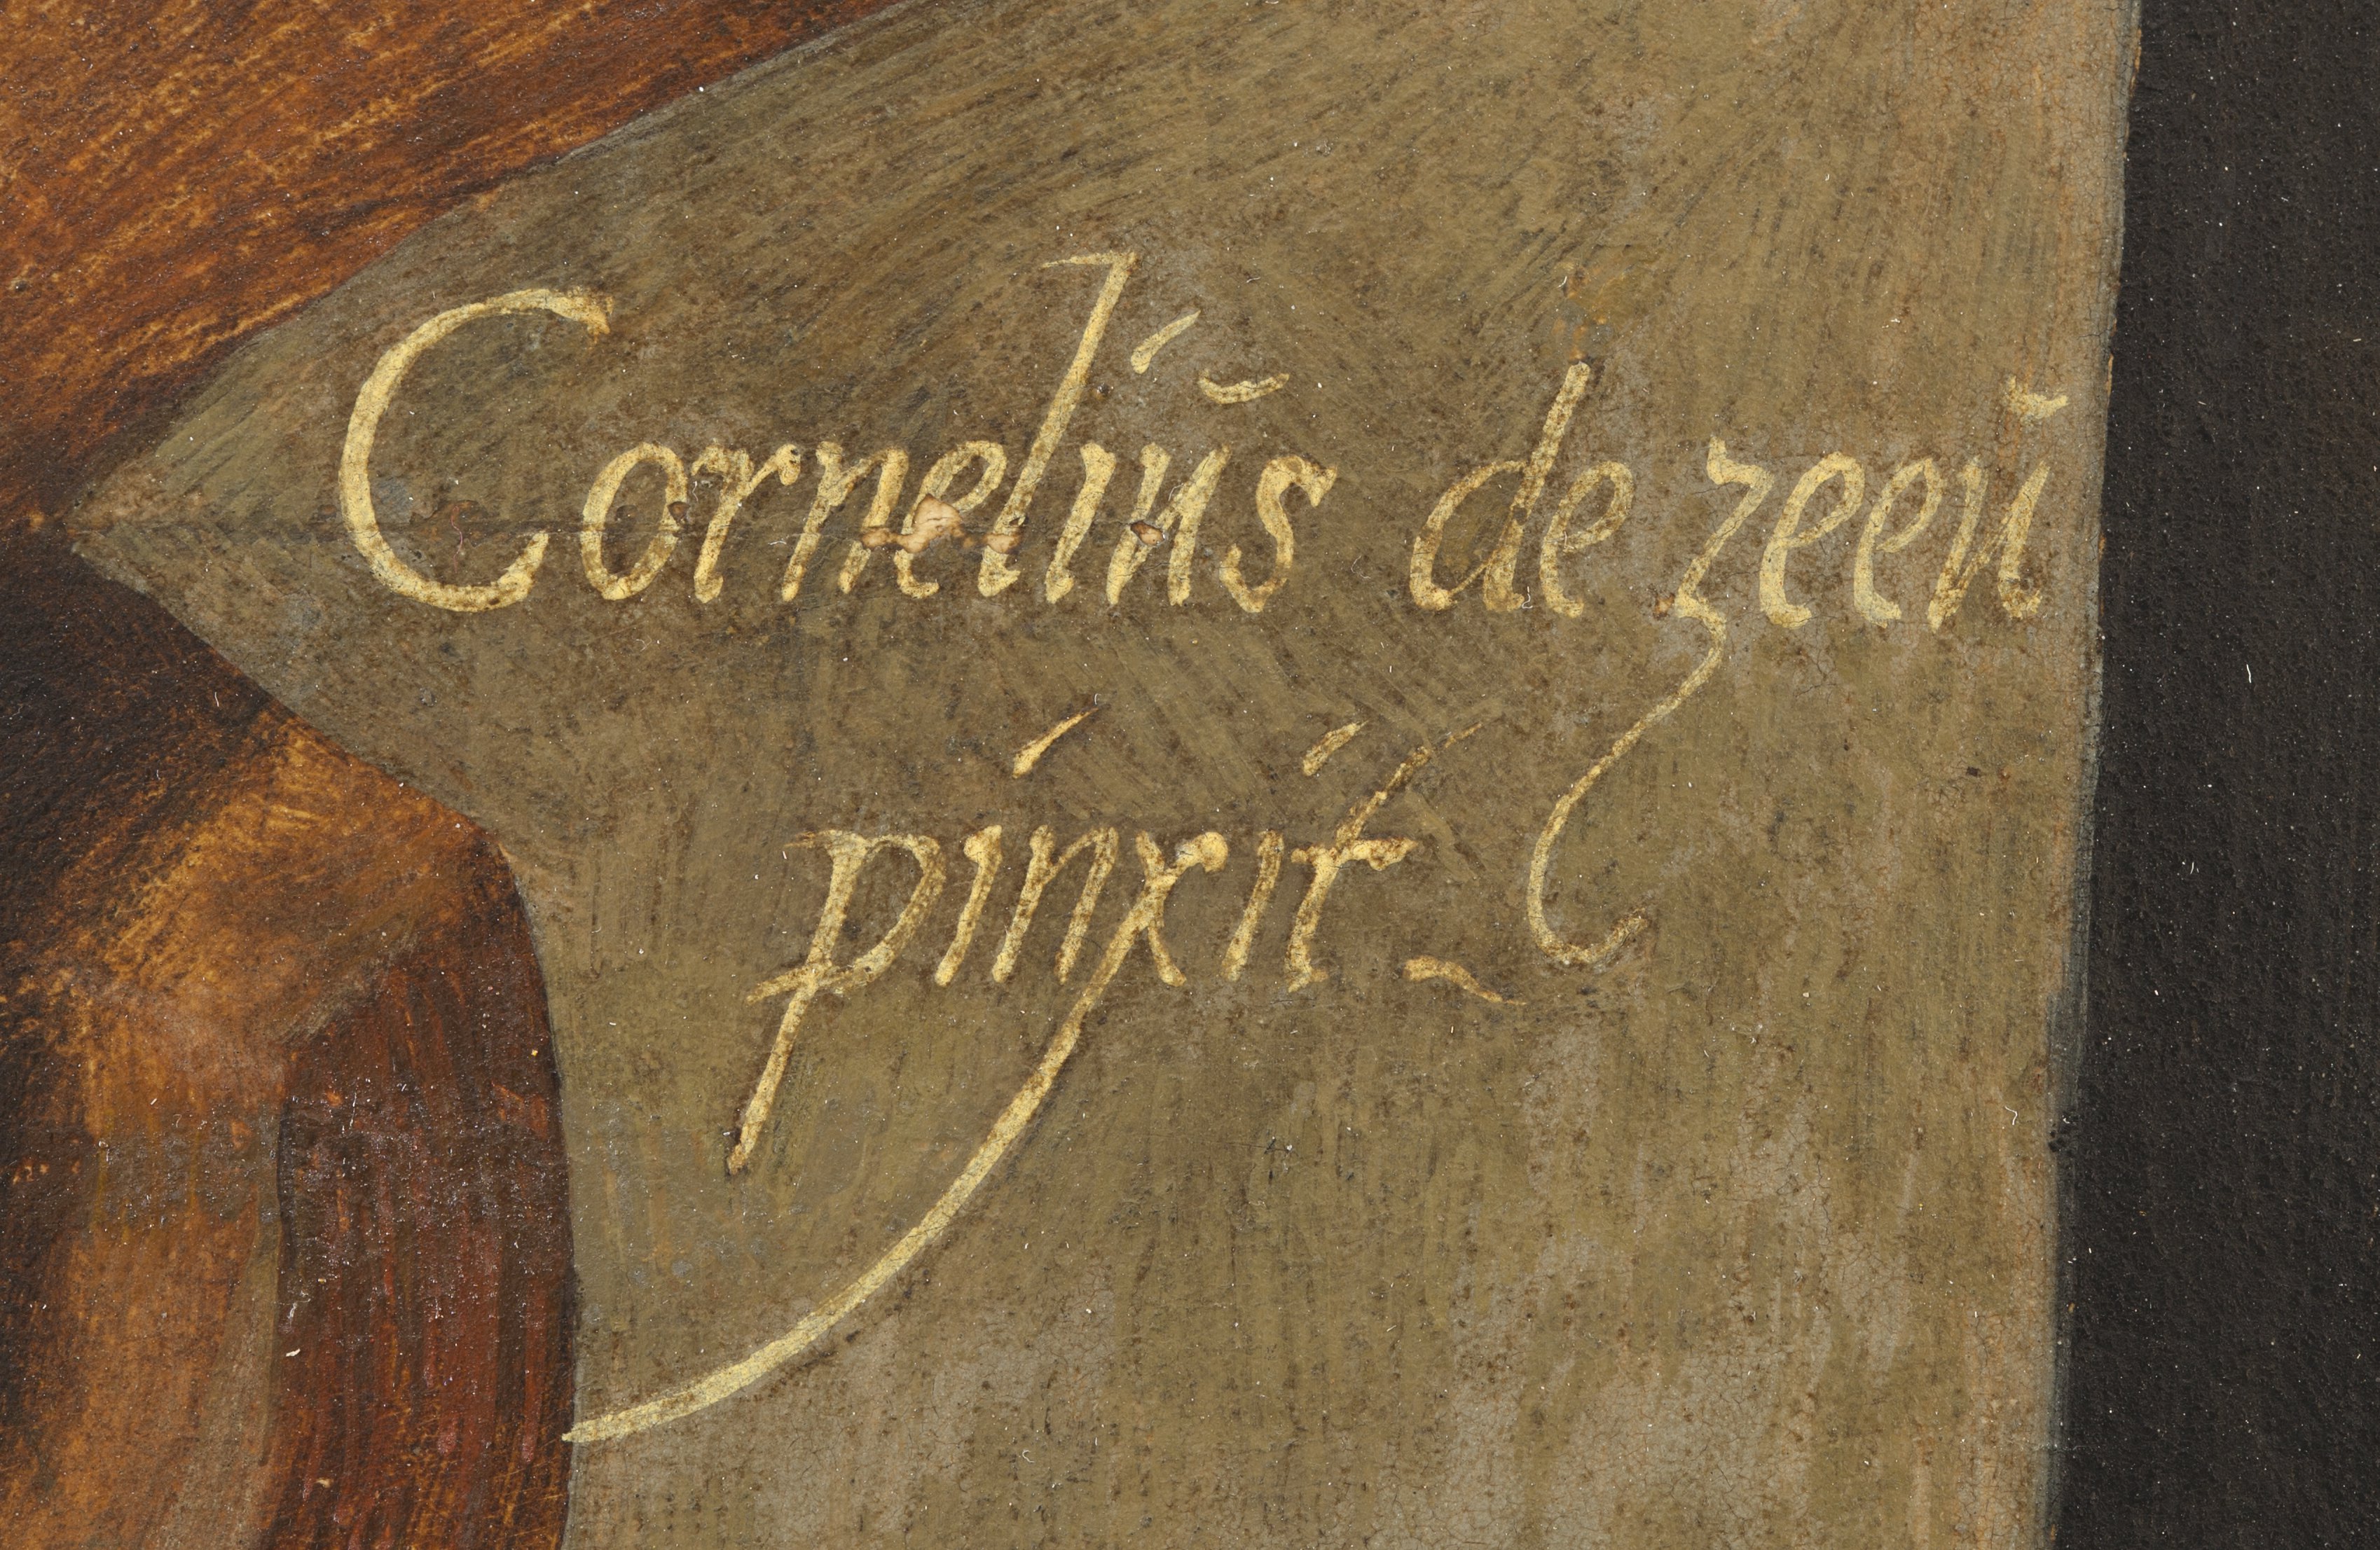 Corneliŭs de zeeŭ
pinxit